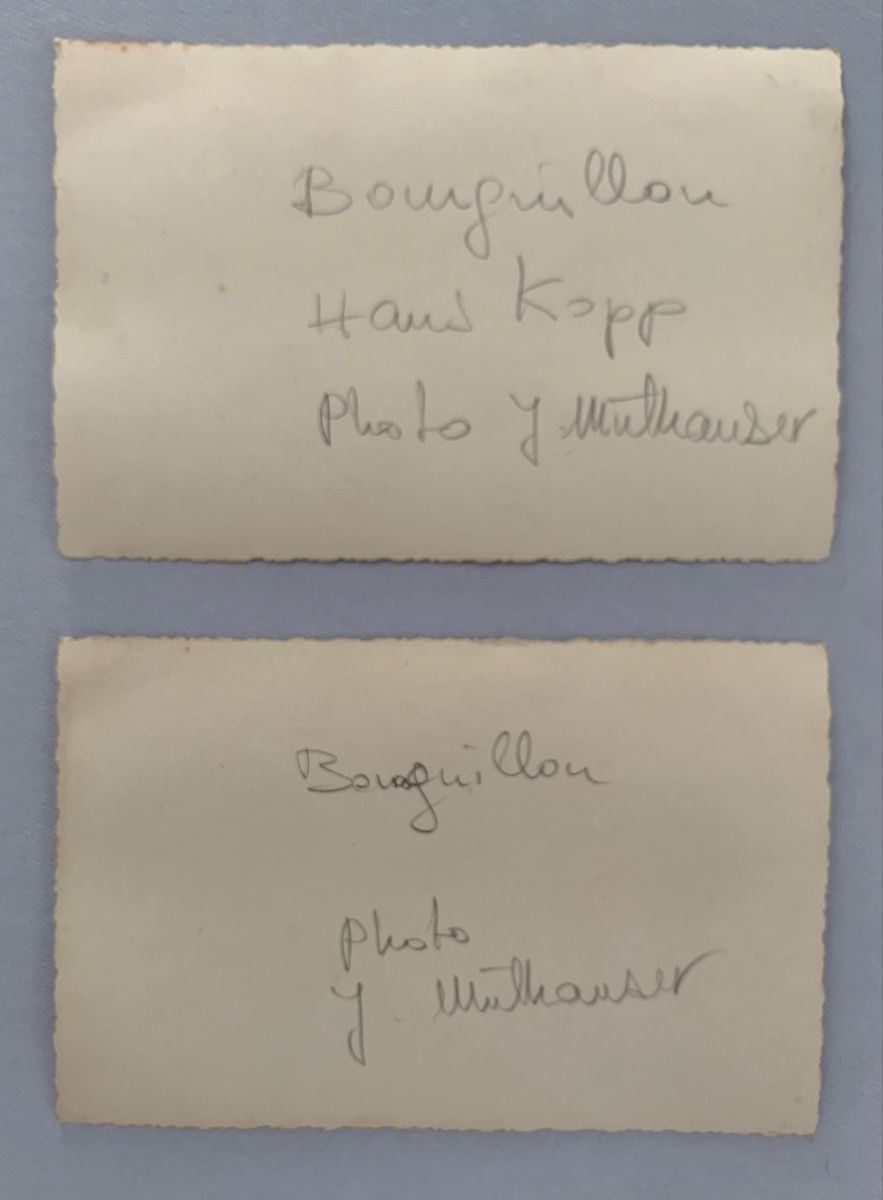 Bourguillon
Hans Kopp
Photo J Mülhauser
Bourguillon
Photo
J. Mülhauser